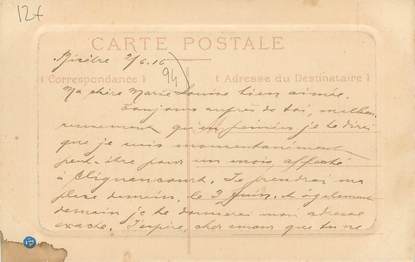 12f
CARTE POSTALE
Bicêtre 2/6.16
94
( Correspondance ) ( Adresse du Destinataire )
Ma chère Marie Louise bien aimée.
Toujours auprès de toi, malheu
reusement qu'en pensées je te dirai
que je suis momentanément
peut être pour un mois affecté
à Clignancourt. Je prendrai ma
place demain, le 3 Juin, et également
demain je te donnerai mon adresse
exacte. J'espère, cher amour que tu ne